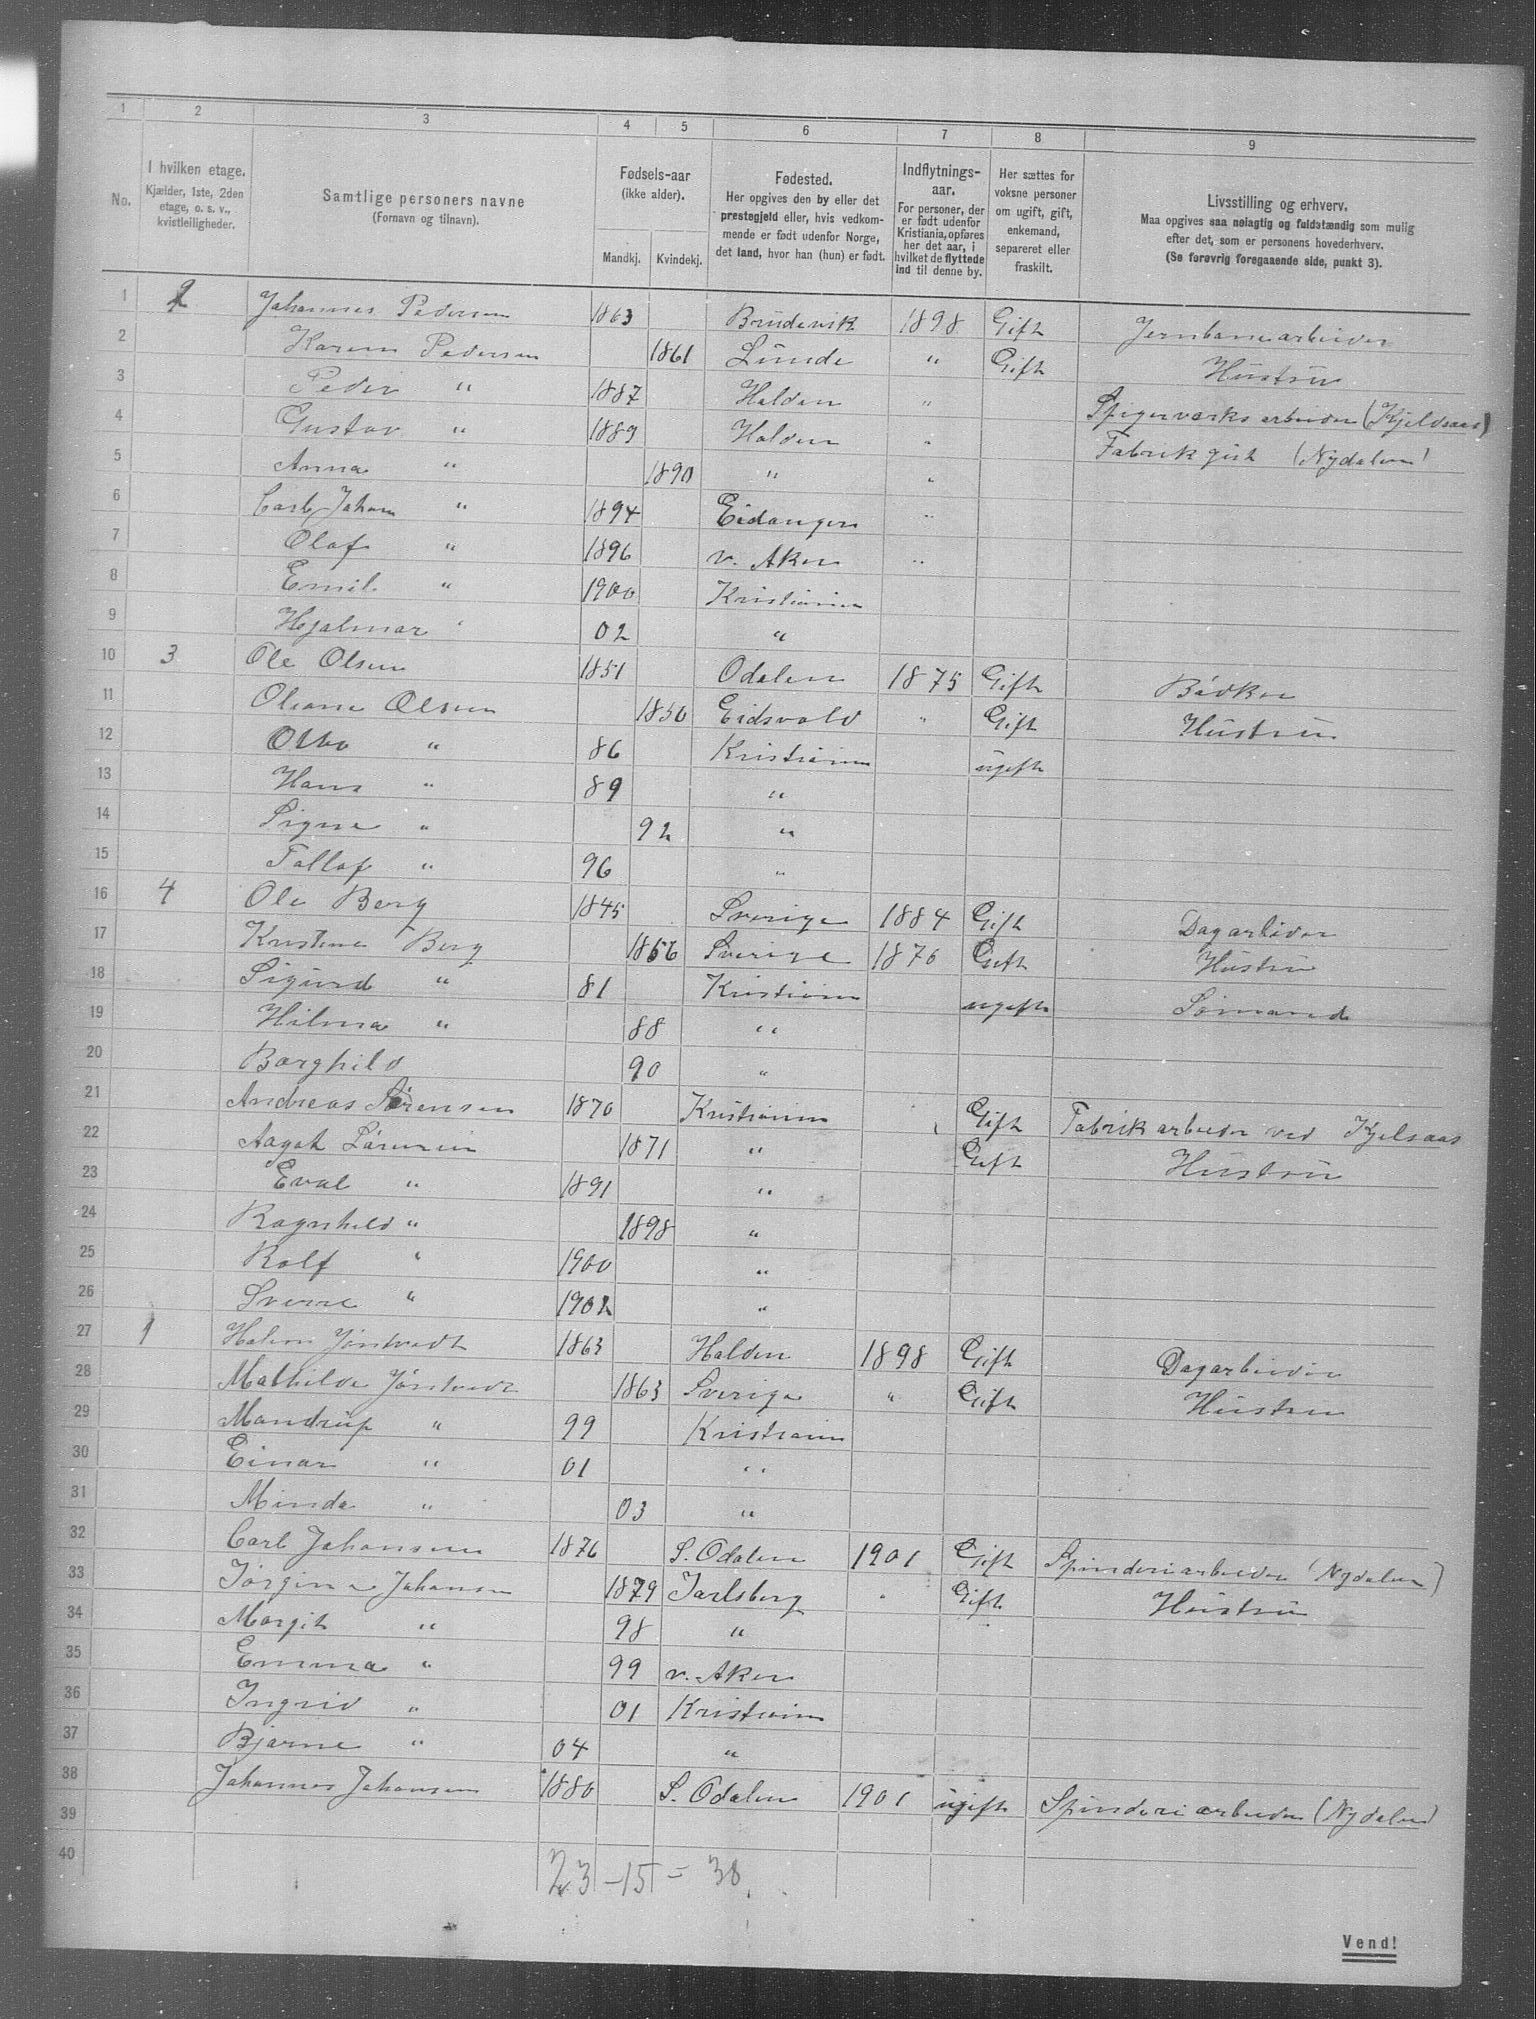 1 2 3 4 5 6 7 8 9
No.
I hvilken etage.
Kjælder, 1ste, 2den
etage, o. s. v.,
kvistleiligheder.
Samtlige personers navne
(Fornavn og tilnavn).
Fødsels-aar
(ikke alder).
Mandkj. Kvindekj.
Fødested.
Her opgives den by eller det
prestegjeld eller, hvis vedkom-
mende er født udenfor Norge,
det land, hvor han (hun) er født.
Indflytnings-
aar.
For personer, der
er født udenfor
Kristiania, opføres
her det aar, i
hvilket de flyttede
ind til denne by.
Her sættes for
voksne personer
om ugift, gift,
enkemand,
separeret eller
fraskilt.
Livsstilling og erhverv.
Maa opgives saa nøiagtig og fuldstændig som mulig
efter det, som er personens hovederhverv.
(Se forøvrig foregaaende side, punkt 3).
1 2 Johannes Pedersen 1863 Brudevik 1898 Gift Jernbanearbeider
2 Karen Pedersen 1861 Lunde " Gift Hustru
3 Peder " 1887 Halden " Spigerverksarbeider (Kjeldsaas)
4 Gustav " 1889 Halden " Fabrikgut (Nydalen)
5 Anna " 1890 " "
6 Carl Johan " 1894 Eidanger "
7 Olaf " 1896 v. Aker "
8 Emil " 1900 Kristiania
9 Hjalmar " 02 "
10 3 Ole Olsen 1851 Odalen 1875 Gift Bødker
11 Oleane Olsen 1850 Eidsvold " Gift Hustru
12 Otto " 86 Kristiania ugift
13 Hans " 89 "
14 Signe " 92 "
15 Tollof " 96 "
16 4 Ole Berg 1845 Sverige 1884 Gift Dagarbeider
17 Kristine Berg 1856 Sverige 1876 Gift Hustru
18 Sigurd " 81 Kristiania ugift Sömand
19 Hilma " 88 "
20 Borghild 90 "
21 Andreas Sørensen 1870 Kristiania Gift Fabrikarbeider ved Kjelsaas
22 Aagot Sørensen 1871 " Gift Hustru
23 Eval " 1891 "
24 Ragnhild " 1898 "
25 Rolf " 1900 "
26 Sverre " 1902 "
27 1 Halvor Jöntvedt 1863 Halden 1898 Gift Dagarbeider
28 Mathilde Jöntvedt 1863 Sverige " Gift Hustru
29 Mandrup " 99 Kristiania
30 Einar " 01 "
31 Minda " 03 "
32 Carl Johansen 1876 S. Odalen 1901 Gift Spinderiarbeider (Nydalen)
33 Jörgine Johansen 1879 Jarlsberg " Gift Hustru
34 Margit " 98 "
35 Emma " 99 v. Aker
36 Ingrid " 01 Kristiania
37 Bjarne " 04 "
38 Johannes Johansen 1880 S. Odalen 1901 ugift Spinderiarbeider (Nydalen)
39
40
23 - 15 = 38
Vend!